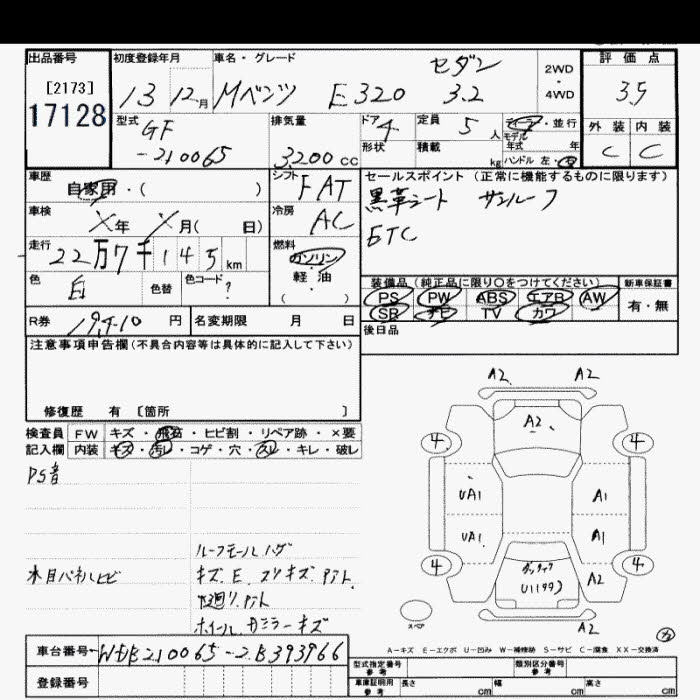 出品番号 初度登録年月 車名・グレード 評価点
[2173] 17128
13 12月 Mベンツ E320 セダン 3.2 2WD ・ 4WD 3.5
型式 排気量 ドア 定員 外装 内装
GF -210065 3200cc 4 5人 ディーラー・並行 C C
形状 積載 kg モデル年式 年 ハンドル 左・右
車歴 自家用・( ) シフト FAT
セールスポイント(正常に機能するものに限ります)
黒革シート サンルーフ
ETC
車検 X年 X月( 日) 冷房 AC
走行 22万7千145km 燃料 ガソリン 軽・油 ( )
色 白 色替 色コード ?
装備品(純正品に限り○をつけてください) 新車保証書
PS PW ABS エアB AW 有・無
SR ナビ TV カワ
R券 19,410円 名変期限 月 日
後日品
注意事項申告欄(不具合内容等は具体的に記入して下さい)
修復歴 有 [箇所 ]
検査員 FW キズ・飛石・ヒビ割・リペア跡・×要
記入欄 内装 キズ・汚レ・コゲ・穴・スレ・キレ・破レ
PS音
ルーフモールハゲ
木目パネルヒビ キズ、E、スリキズ、アト
ホイール、カミラーキズ
A2 A2
A2
4 4
UA1 A1
UA1 A1
4 4
A2
U1(99)
スペア A2
A-キズ E-エクボ U-凹み W-補修跡 S-サビ C-腐食 XX-交換済
車台番号 WDB210065-2B393966
型式指定番号 参考 類別区分番号 参考
登録番号
車庫証明用 参考 長さ cm 幅 cm 高さ cm